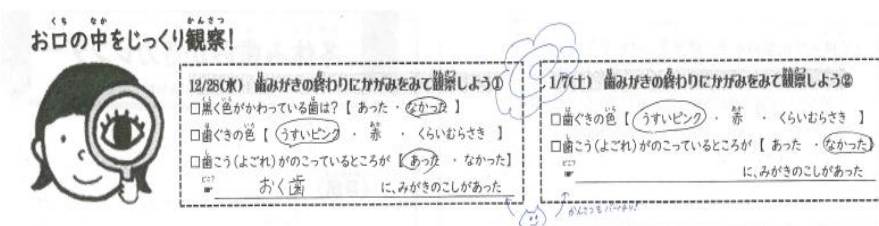 お口の中をじっくり観察！
12/28(水) 歯みがきの終わりにかがみをみて観察しよう①
□黒く色がかわっている歯は？【 あった ・ なかった 】
□歯ぐきの色【 うすいピンク ・ 赤 ・ くらいむらさき 】
□歯こう(よごれ)がのこっているところが【 あった ・ なかった】
どこ?
☞ おく歯 に、みがきのこしがあった
1/7(土) 歯みがきの終わりにかがみをみて観察しよう②
□歯ぐきの色【 うすいピンク ・ 赤 ・ くらいむらさき 】
□歯こう(よごれ)がのこっているところが【 あった ・ なかった】
どこ?
☞ に、みがきのこしがあった
かんさつもバッチリ!